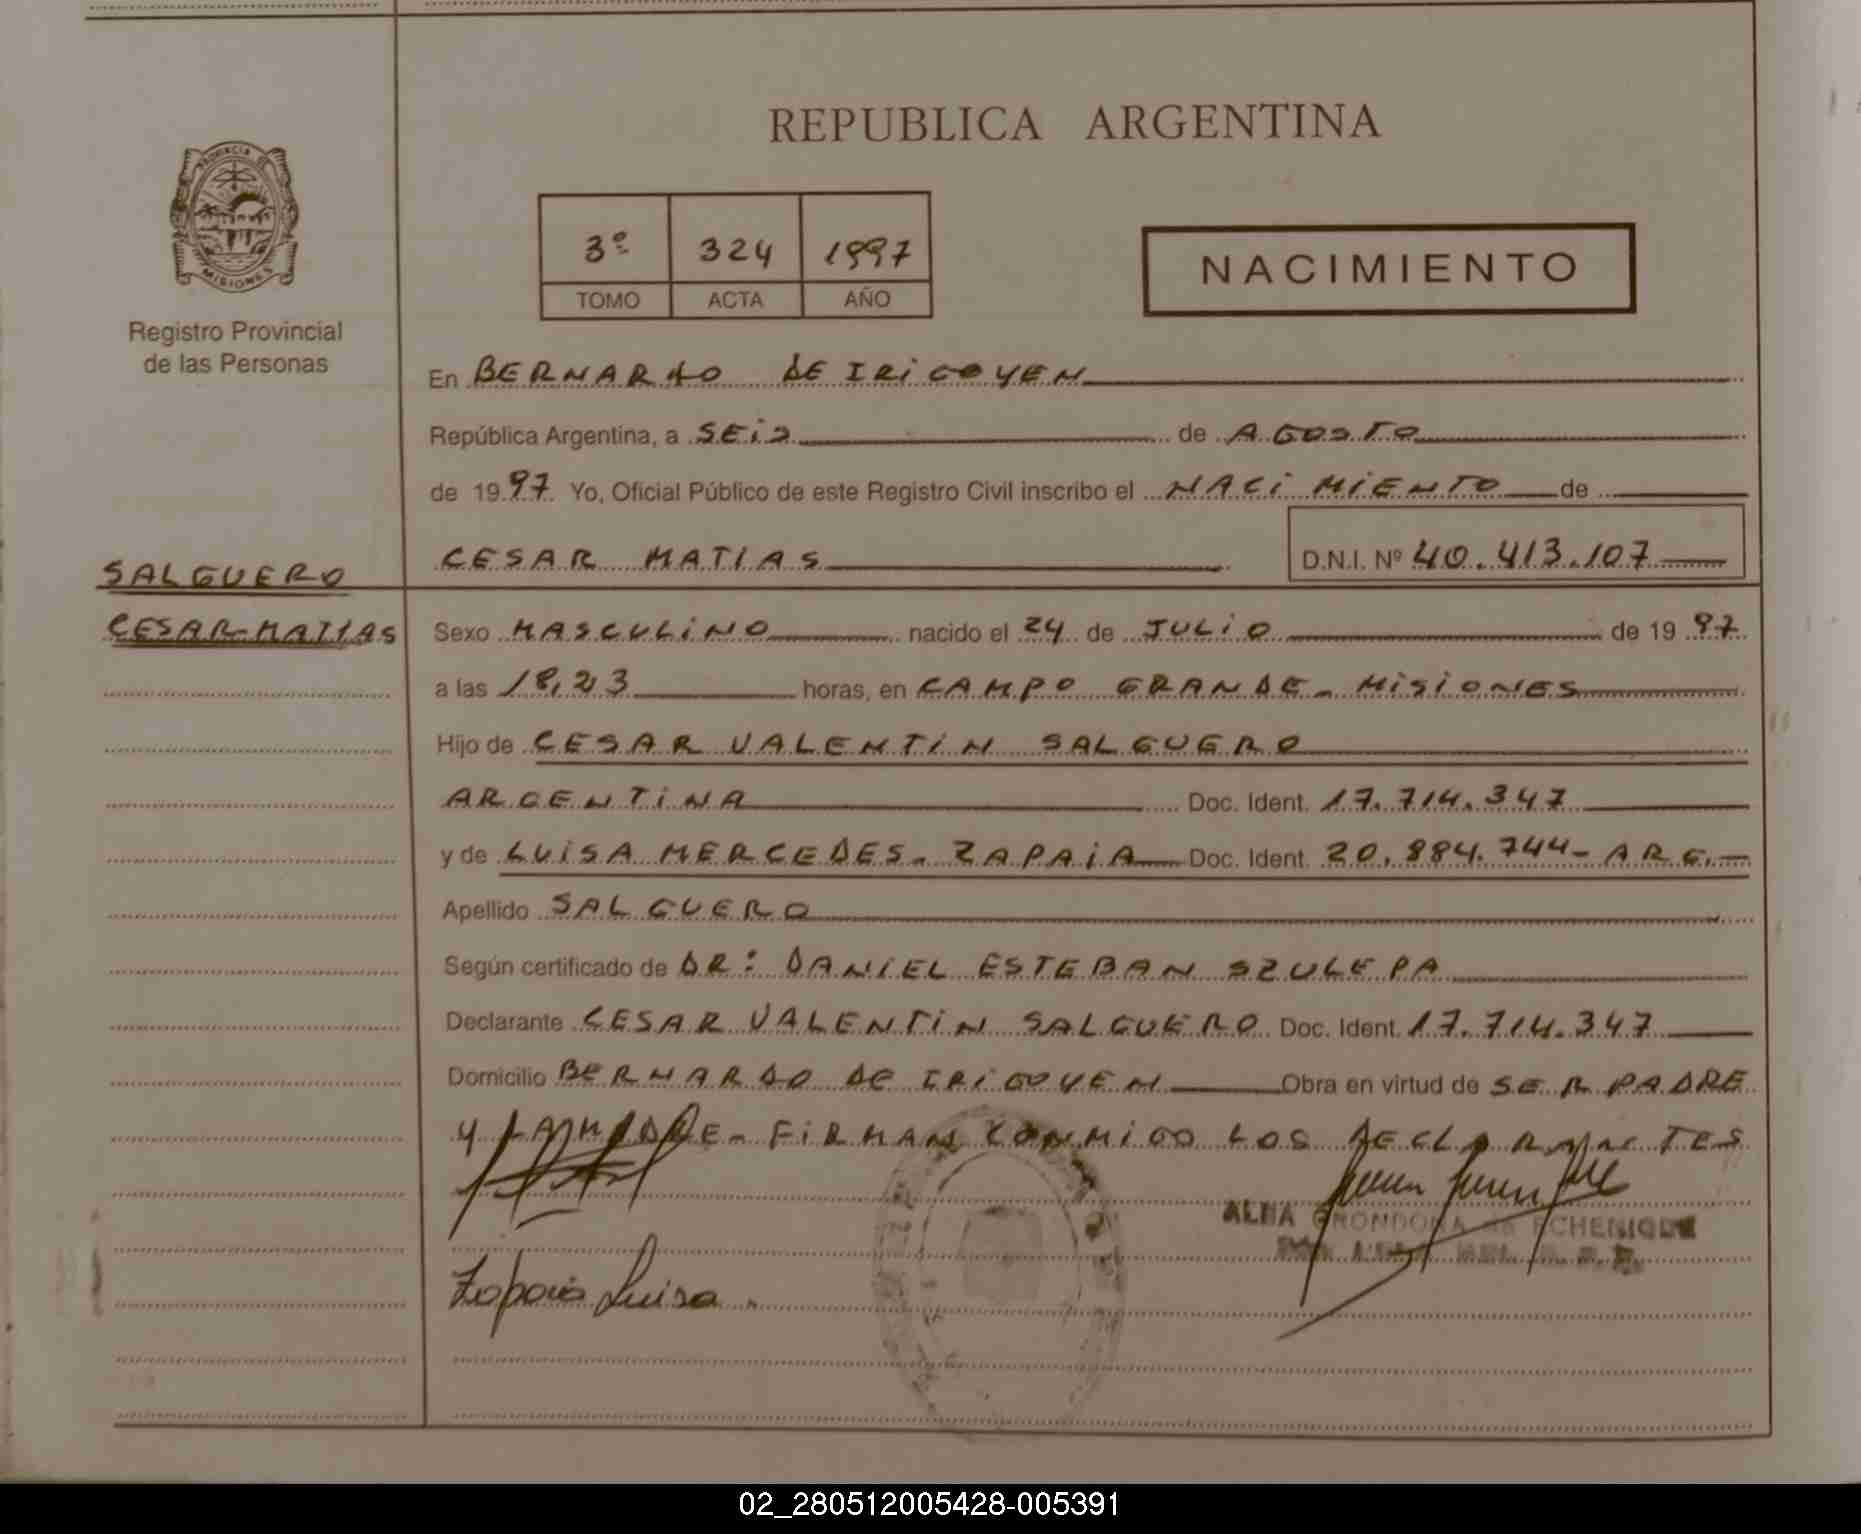 REPUBLICA ARGENTINA
PROVINCIA DE
MISIONES
Registro Provincial
de las Personas
3º 324 1997
TOMO ACTA AÑO
NACIMIENTO
En BERNARDO DE IRIGOYEN
República Argentina, a SEIS de AGOSTO
de 1997 Yo, Oficial Público de este Registro Civil inscribo el NACIMIENTO de
CESAR MATIAS D.N.I. Nº 40.413.107
SALGUERO
CESAR-MATIAS
Sexo MASCULINO nacido el 24 de JULIO de 1997
a las 18,23 horas, en CAMPO GRANDE - MISIONES
Hijo de CESAR VALENTIN SALGUERO
ARGENTINA Doc. Ident. 17.714.347
y de LUISA MERCEDES - ZAPAIA Doc. Ident. 20.884.744 - ARG.-
Apellido SALGUERO
Según certificado de DR: DANIEL ESTEBAN SZULEPA
Declarante CESAR VALENTIN SALGUERO Doc. Ident. 17.714.347
Domicilio BERNARDO DE IRIGOYEN Obra en virtud de SER PADRE
Y LA MADRE - FIRMAN CONMIGO LOS DECLARANTES
ALBA GRONDONA de ECHENIQUE
Zapaia Luisa.
02_280512005428-005391